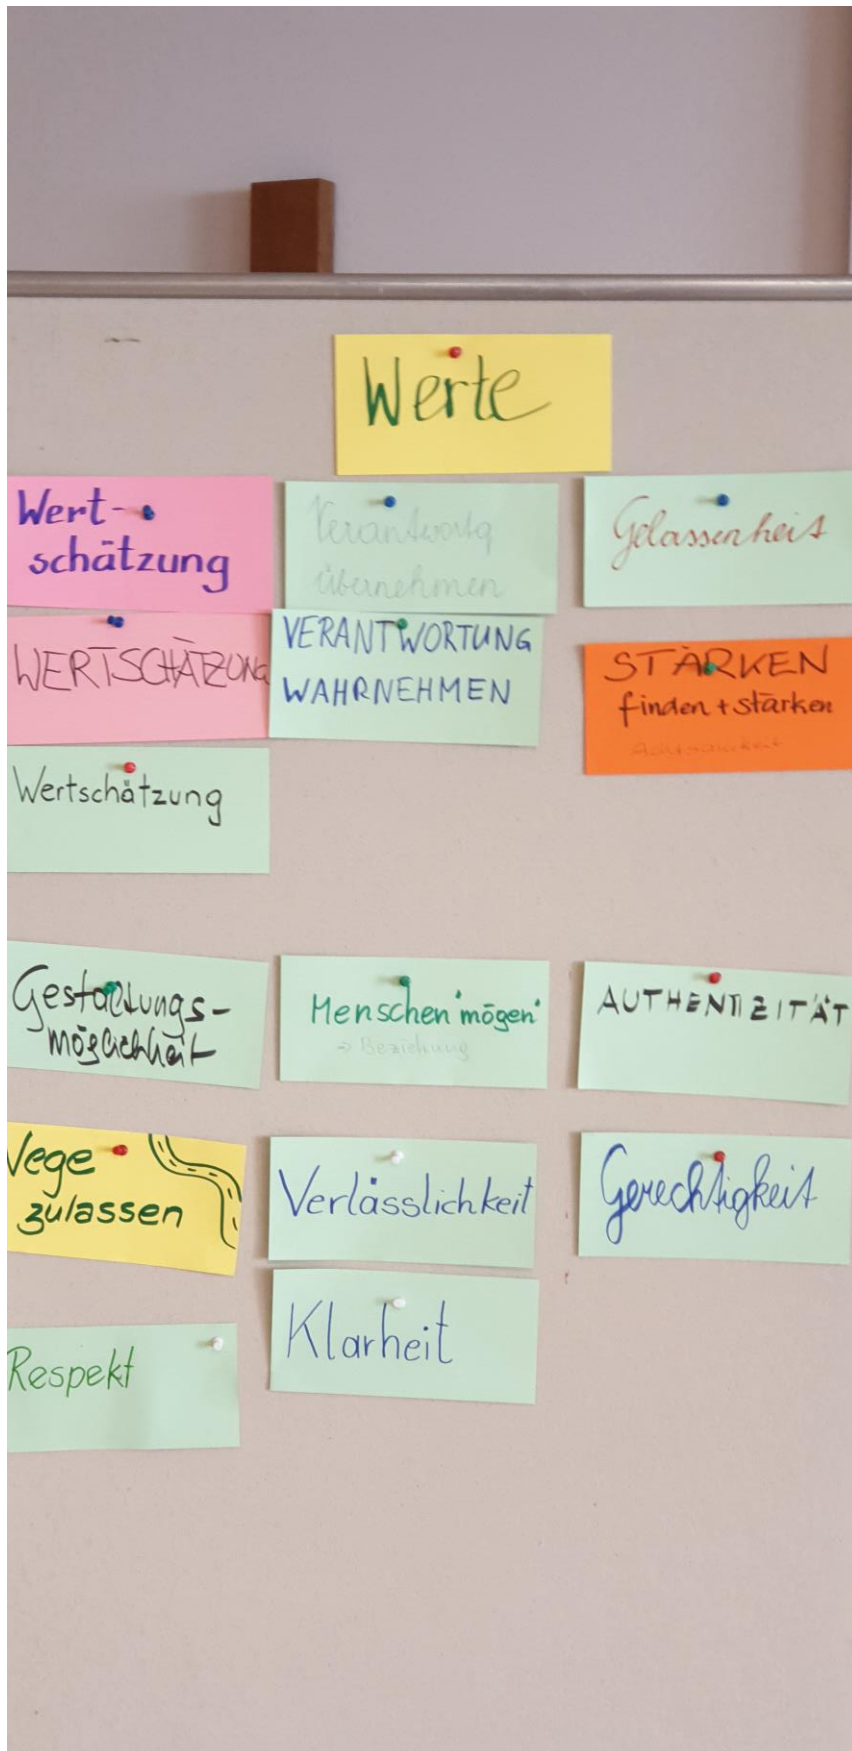 Werte
Wert-
schätzung
Verantwortg
übernehmen
Gelassenheit
WERTSCHÄTZUNG
VERANTWORTUNG
WAHRNEHMEN
STÄRKEN
finden + stärken
Achtsamkeit
Wertschätzung
Gestaltungs-
möglichkeit
Menschen "mögen"
→ Beziehung
AUTHENTIZITÄT
Wege
zulassen
Verlässlichkeit
Gerechtigkeit
Klarheit
Respekt